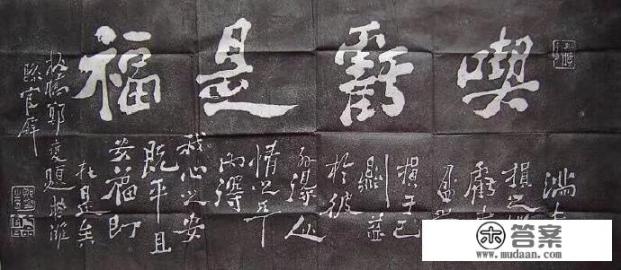 喫虧是福
滿
損之
虧
盈
損于己
則益
於彼
外得人
情之平
內得
我心之安
既平且
安福即
在是矣
板橋鄭燮題於濰
縣官廨
答案
www.mudaan.com